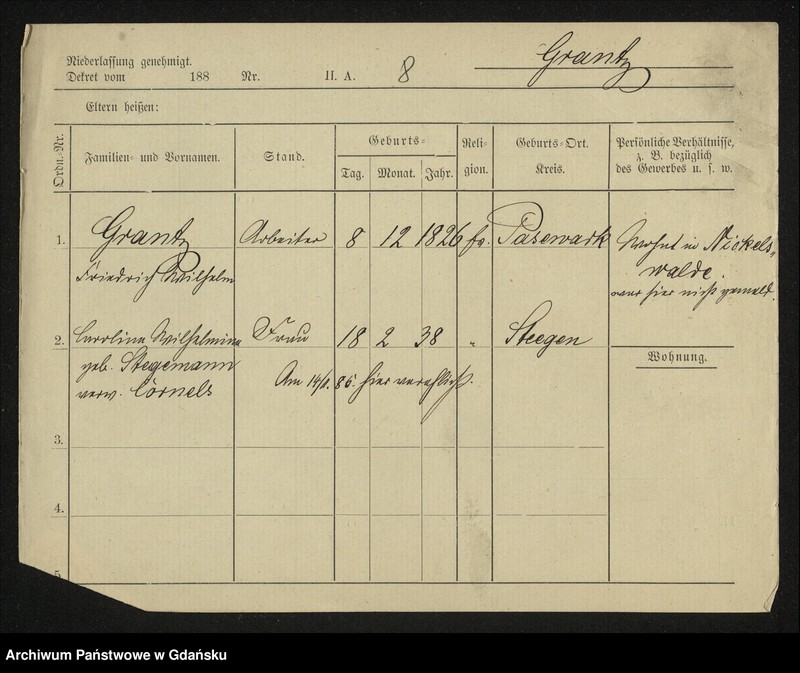 Grantz
Niederlassung genehmigt.
Dekret vom 188 Nr. II. A. 8
Eltern heißen:
Ordn.-Nr.
Familien- und Vornamen.
Stand.
Geburts-
Tag. Monat. Jahr.
Reli-
gion.
Geburts-Ort.
Kreis.
Persönliche Verhältnisse,
z. B. bezüglich
des Gewerbes u. s. w.
1. Grantz Arbeiter 8 12 1826 ev. Pasewark
Friedrich Wilhelm
Wohnt in Nickels-
walde.
war hier nicht gemeld.
2. Carolina Wilhelmine Frau 18 2 38 " Steegen
geb. Stegemann
verw. Cörnels
Am 14/1. 86. hier verehlicht.
Wohnung.
3.
4.
5
Archiwum Państwowe w Gdańsku